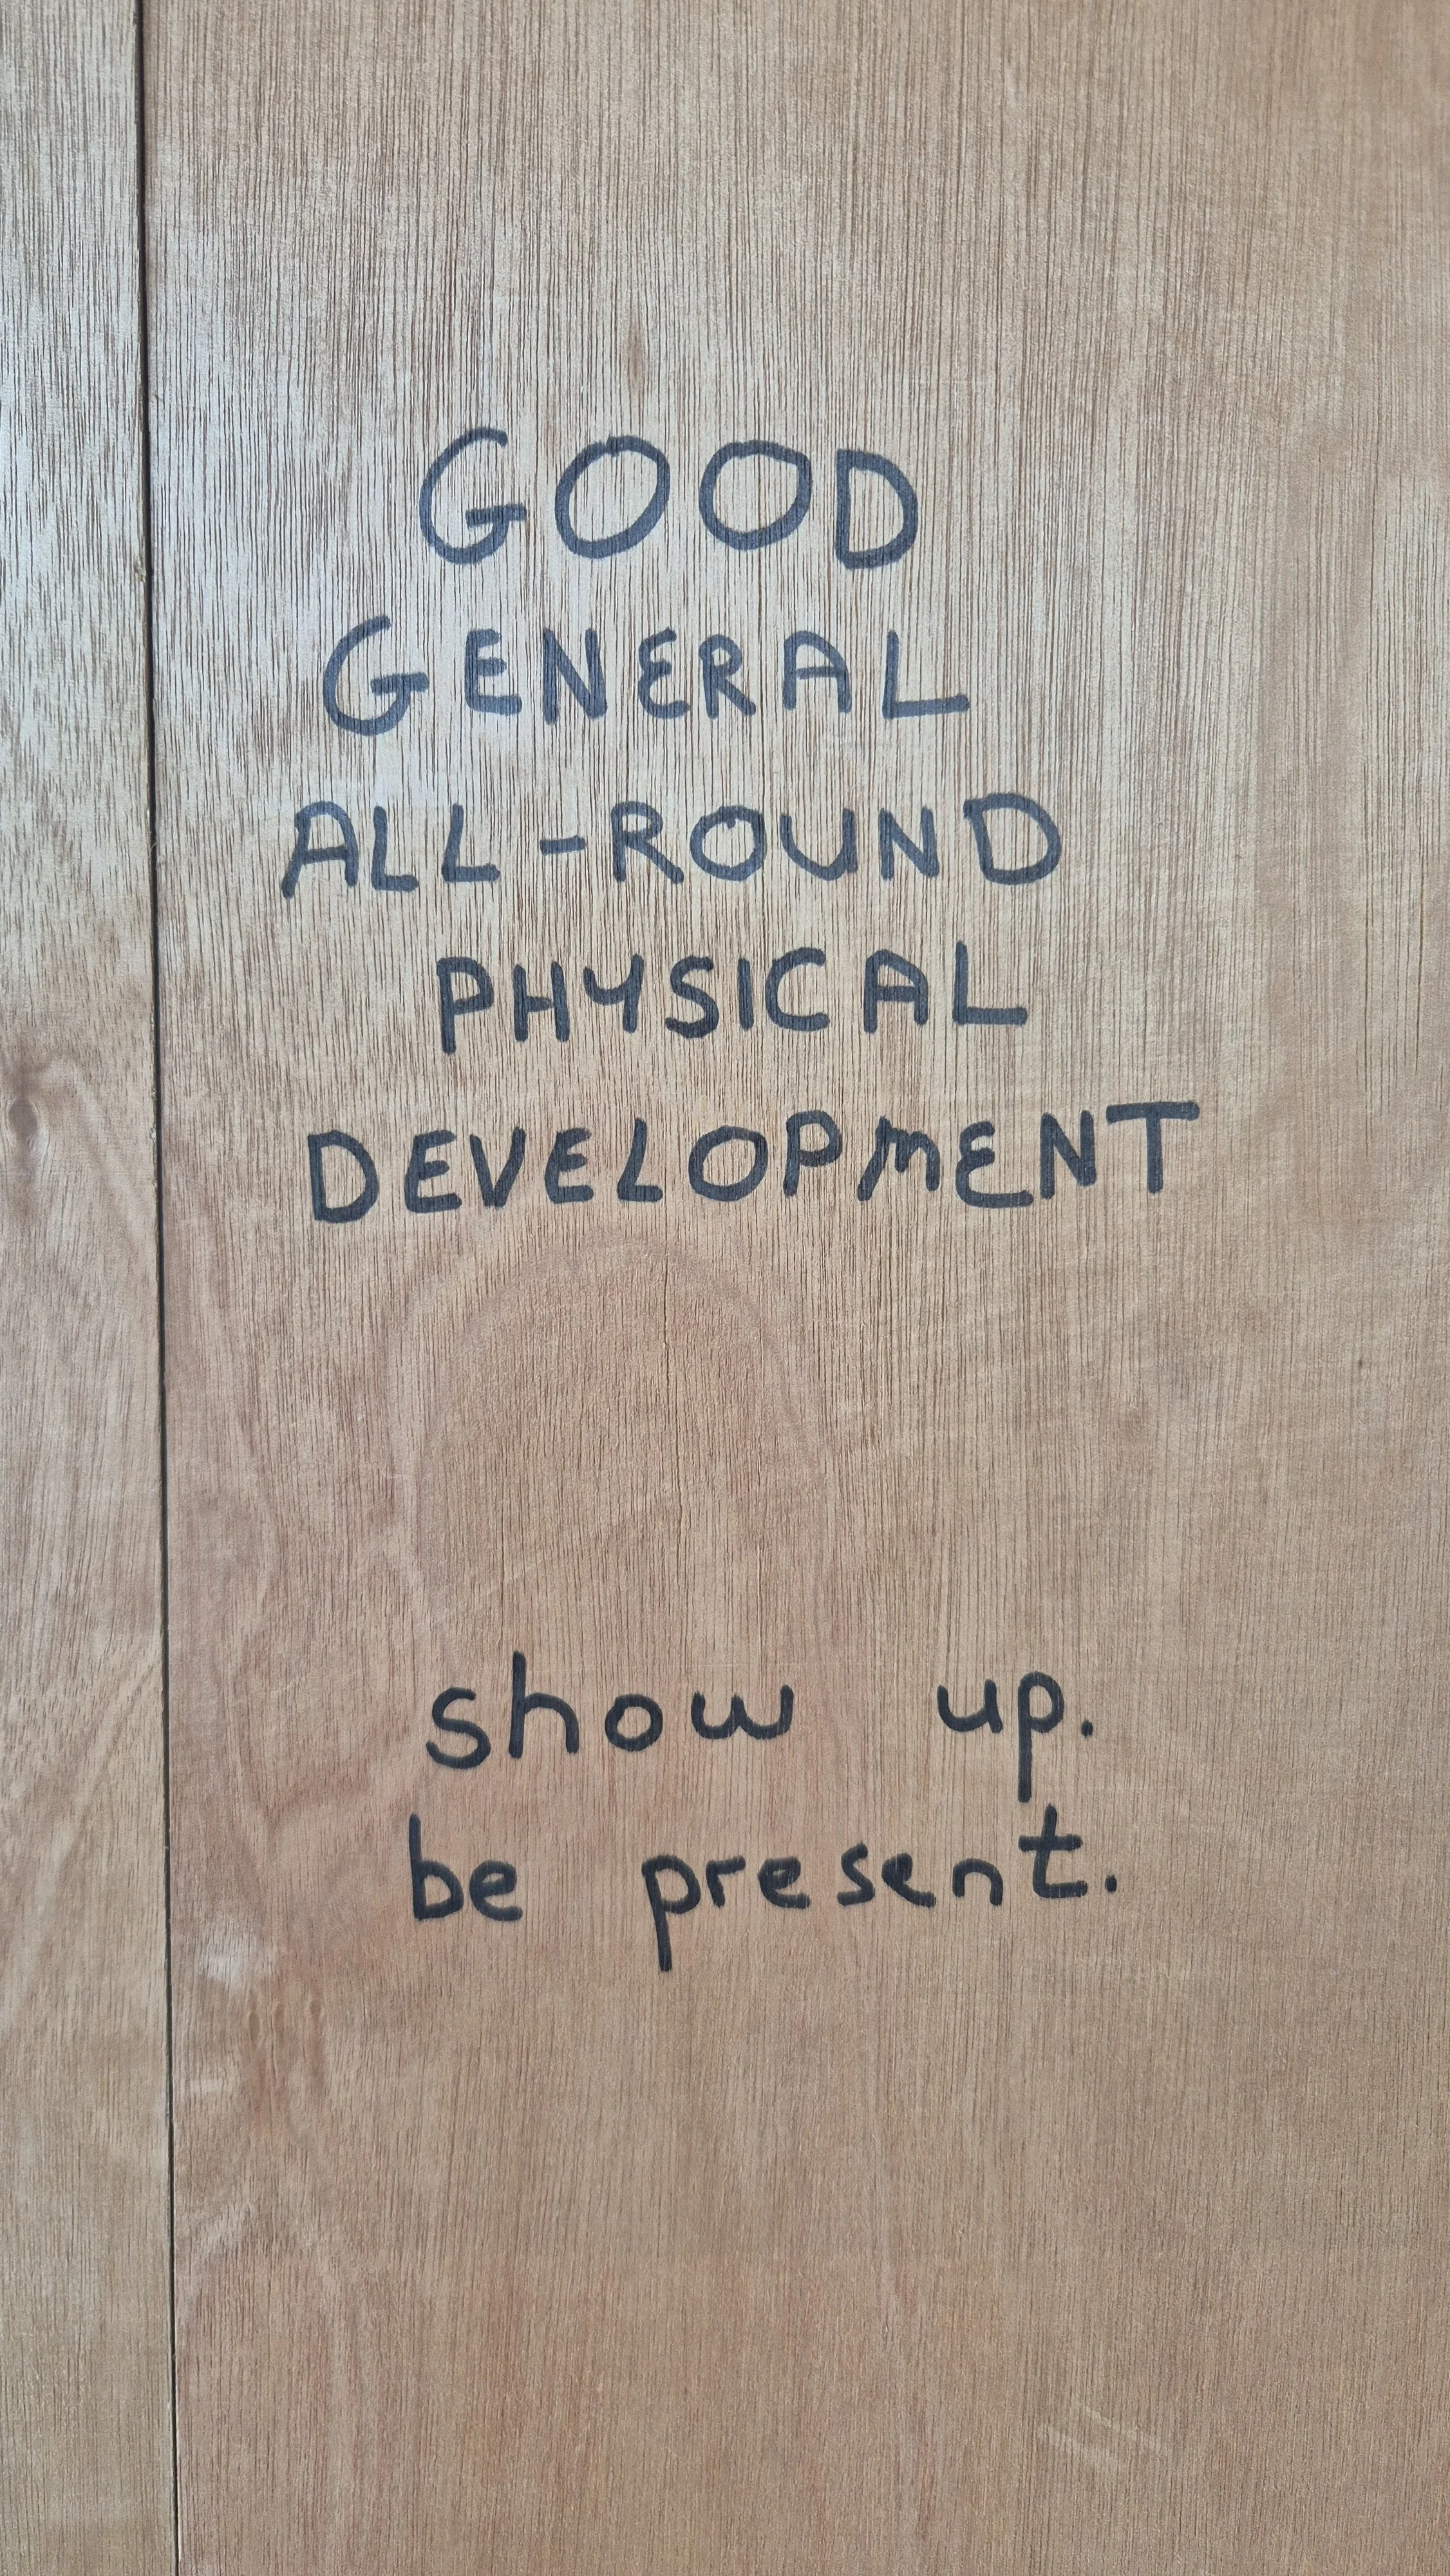 GOOD
GENERAL
ALL-ROUND
PHYSICAL
DEVELOPMENT
show up.
be present.